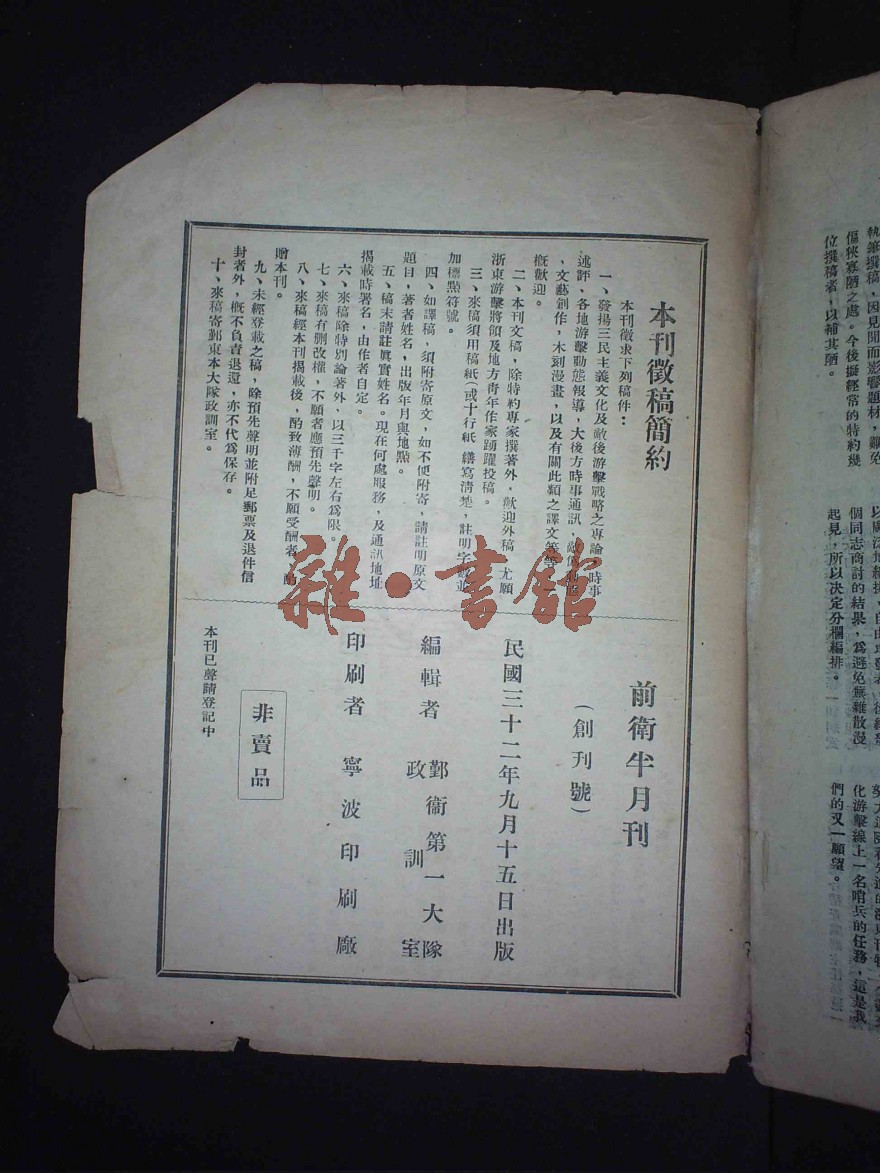 本刊徵稿簡約
本刊徵求下列稿件：
一、發揚三民主義文化及敵後游擊戰略之專論，時事
述評、各地游擊動態報導，大後方時事通訊，
，文藝創作，木刻漫畫，以及有關此類之譯文等等
概歡迎。
二、本刊文稿，除特約專家撰著外，歡迎外稿，尤願
浙東游擊將領及地方青年作家踴躍投稿。
三、來稿須用稿紙（或十行紙 繕寫清楚，註明字數並
加標點符號。
四、如譯稿，須附寄原文，如不便附寄，請註明原文
題目，著者姓名，出版年月與地點。
五、稿末請註眞實姓名。現在何處服務，及通訊地址
揭載時署名，由作者自定。
六、來稿除特別論著外，以三千字左右爲限。
七、來稿有删改權，不願者應預先聲明。
八、來稿經本刊揭載後，酌致薄酬，不願受酬者，酌
贈本刊。
九、未經登載之稿，除預先聲明並附足郵票及退件信
封者外，概不負責退還，亦不代爲保存。
十、來稿寄鄞東本大隊政訓室。
前衛半月刊
（創刊號）
民國三十二年九月十五日出版
編輯者 鄞衞第一大隊
政訓室
印刷者 寧波印刷廠
非賣品
本刊已聲請登記中
雜·書館
執筆撰稿，因見聞而影響題材，難免
偏狹寡陋之處。今後擬經常的特約幾
位撰稿者，以補其陋。
個同志商討的結果，爲避免無雜散漫
起見，所以決定分欄編排。
化游擊線上一名哨兵的任務，這是我
們的又一願望。